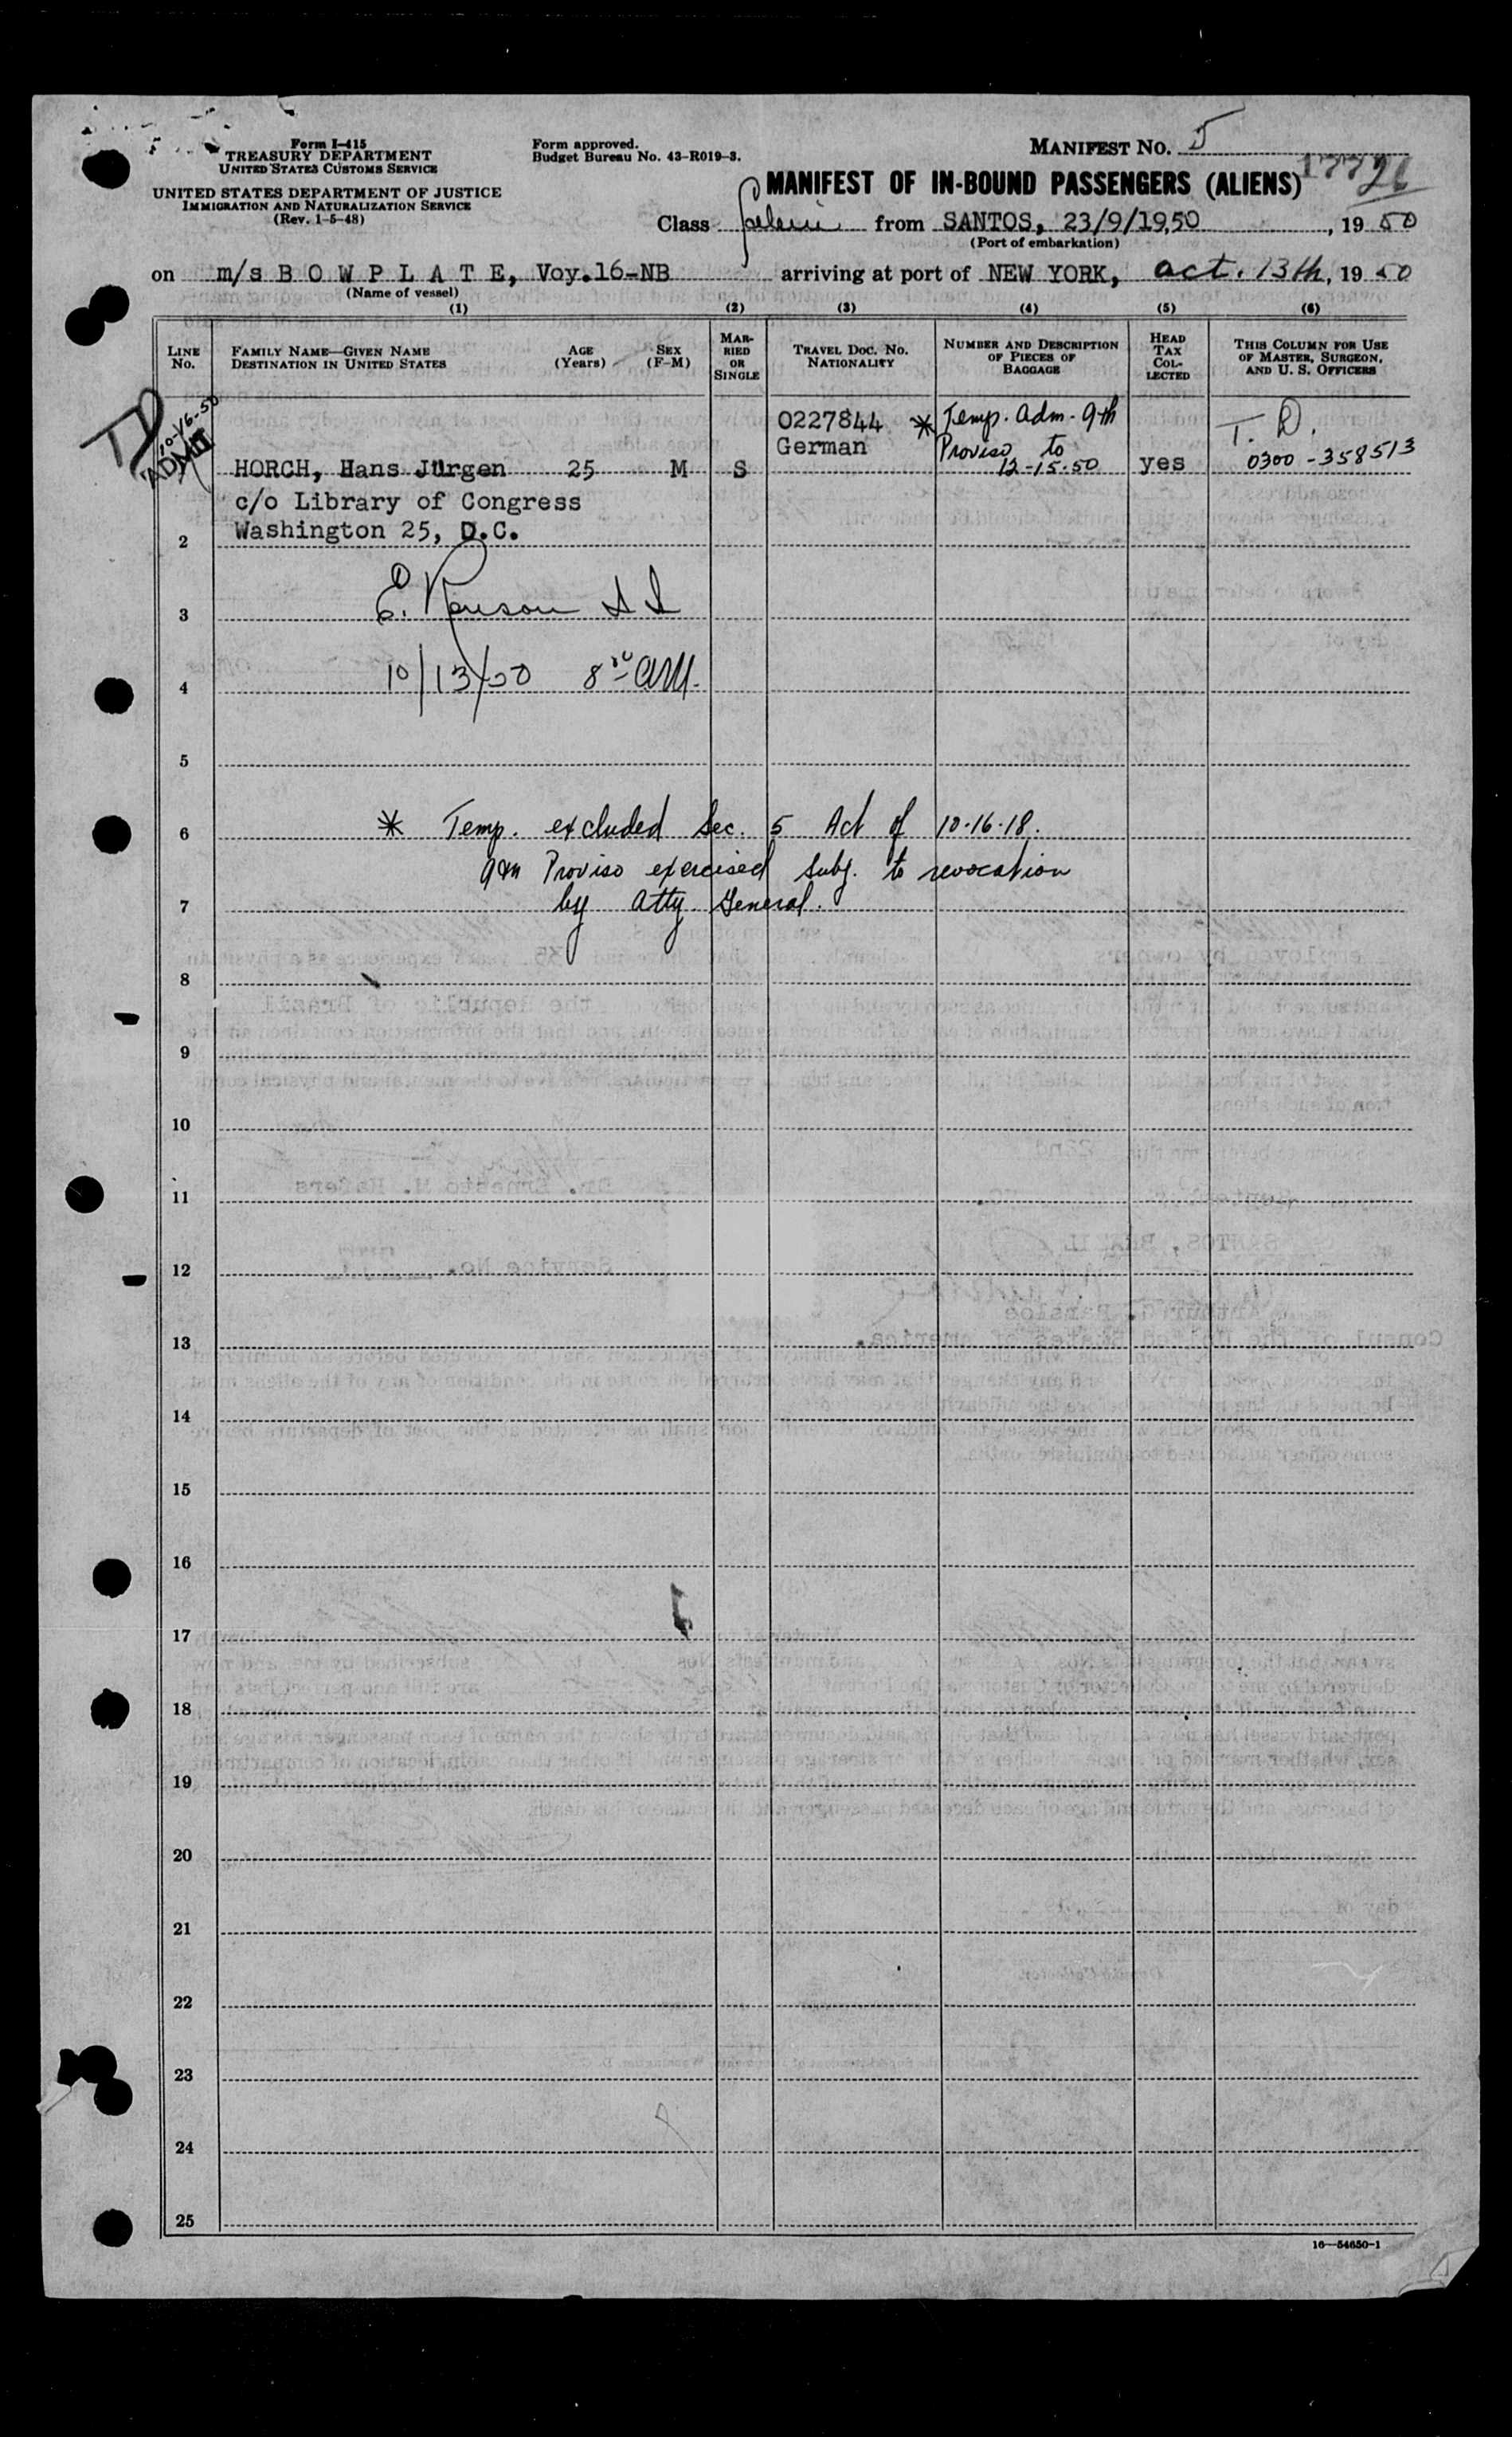 Form I-415
TREASURY DEPARTMENT
UNITED STATES CUSTOMS SERVICE
UNITED STATES DEPARTMENT OF JUSTICE
IMMIGRATION AND NATURALIZATION SERVICE
(Rev. 1-5-48)
Form approved.
Budget Bureau No. 43-R019-3.
MANIFEST NO. 5
MANIFEST OF IN-BOUND PASSENGERS (ALIENS)
Class from SANTOS, 23/9/1950, 19 50
(Port of embarkation)
on m/s B O W P L A T E, Voy.16-NB arriving at port of NEW YORK, Oct. 13th, 19 50
(Name of vessel)
(1) (2) (3) (4) (5) (6)
LINE No.
FAMILY NAME—GIVEN NAME
DESTINATION IN UNITED STATES
AGE (Years)
SEX (F-M)
MARRIED OR SINGLE
TRAVEL DOC. NO.
NATIONALITY
NUMBER AND DESCRIPTION OF PIECES OF BAGGAGE
HEAD TAX COLLECTED
THIS COLUMN FOR USE OF MASTER, SURGEON, AND U. S. OFFICERS
TD
10-16-50
ADMIT
0227844 * Temp. Adm. 9th T. D.
German Proviso to
HORCH, Hans Jürgen 25 M S 12-15-50 yes 0300-358513
c/o Library of Congress
2 Washington 25, D.C.
3
4 10/13/50 AM.
5
6 * Temp. excluded Sec. 5 Act of 10-16-18.
9th Proviso exercised subj. to revocation
7 by Atty General.
8
9
10
11
12
13
14
15
16
17
18
19
20
21
22
23
24
25
16—54650-1